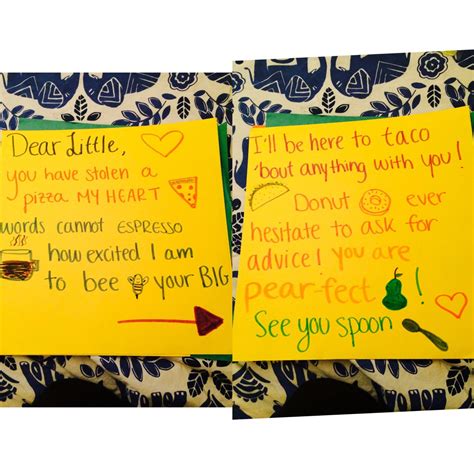 Dear Little,
you have stolen a
pizza MY HEART
words cannot ESPRESSO
how excited I am
to bee your BIG
I'll be here to taco
'bout anything with you!
Donut ever
hesitate to ask for
advice! you are
pear-fect !
See you spoon